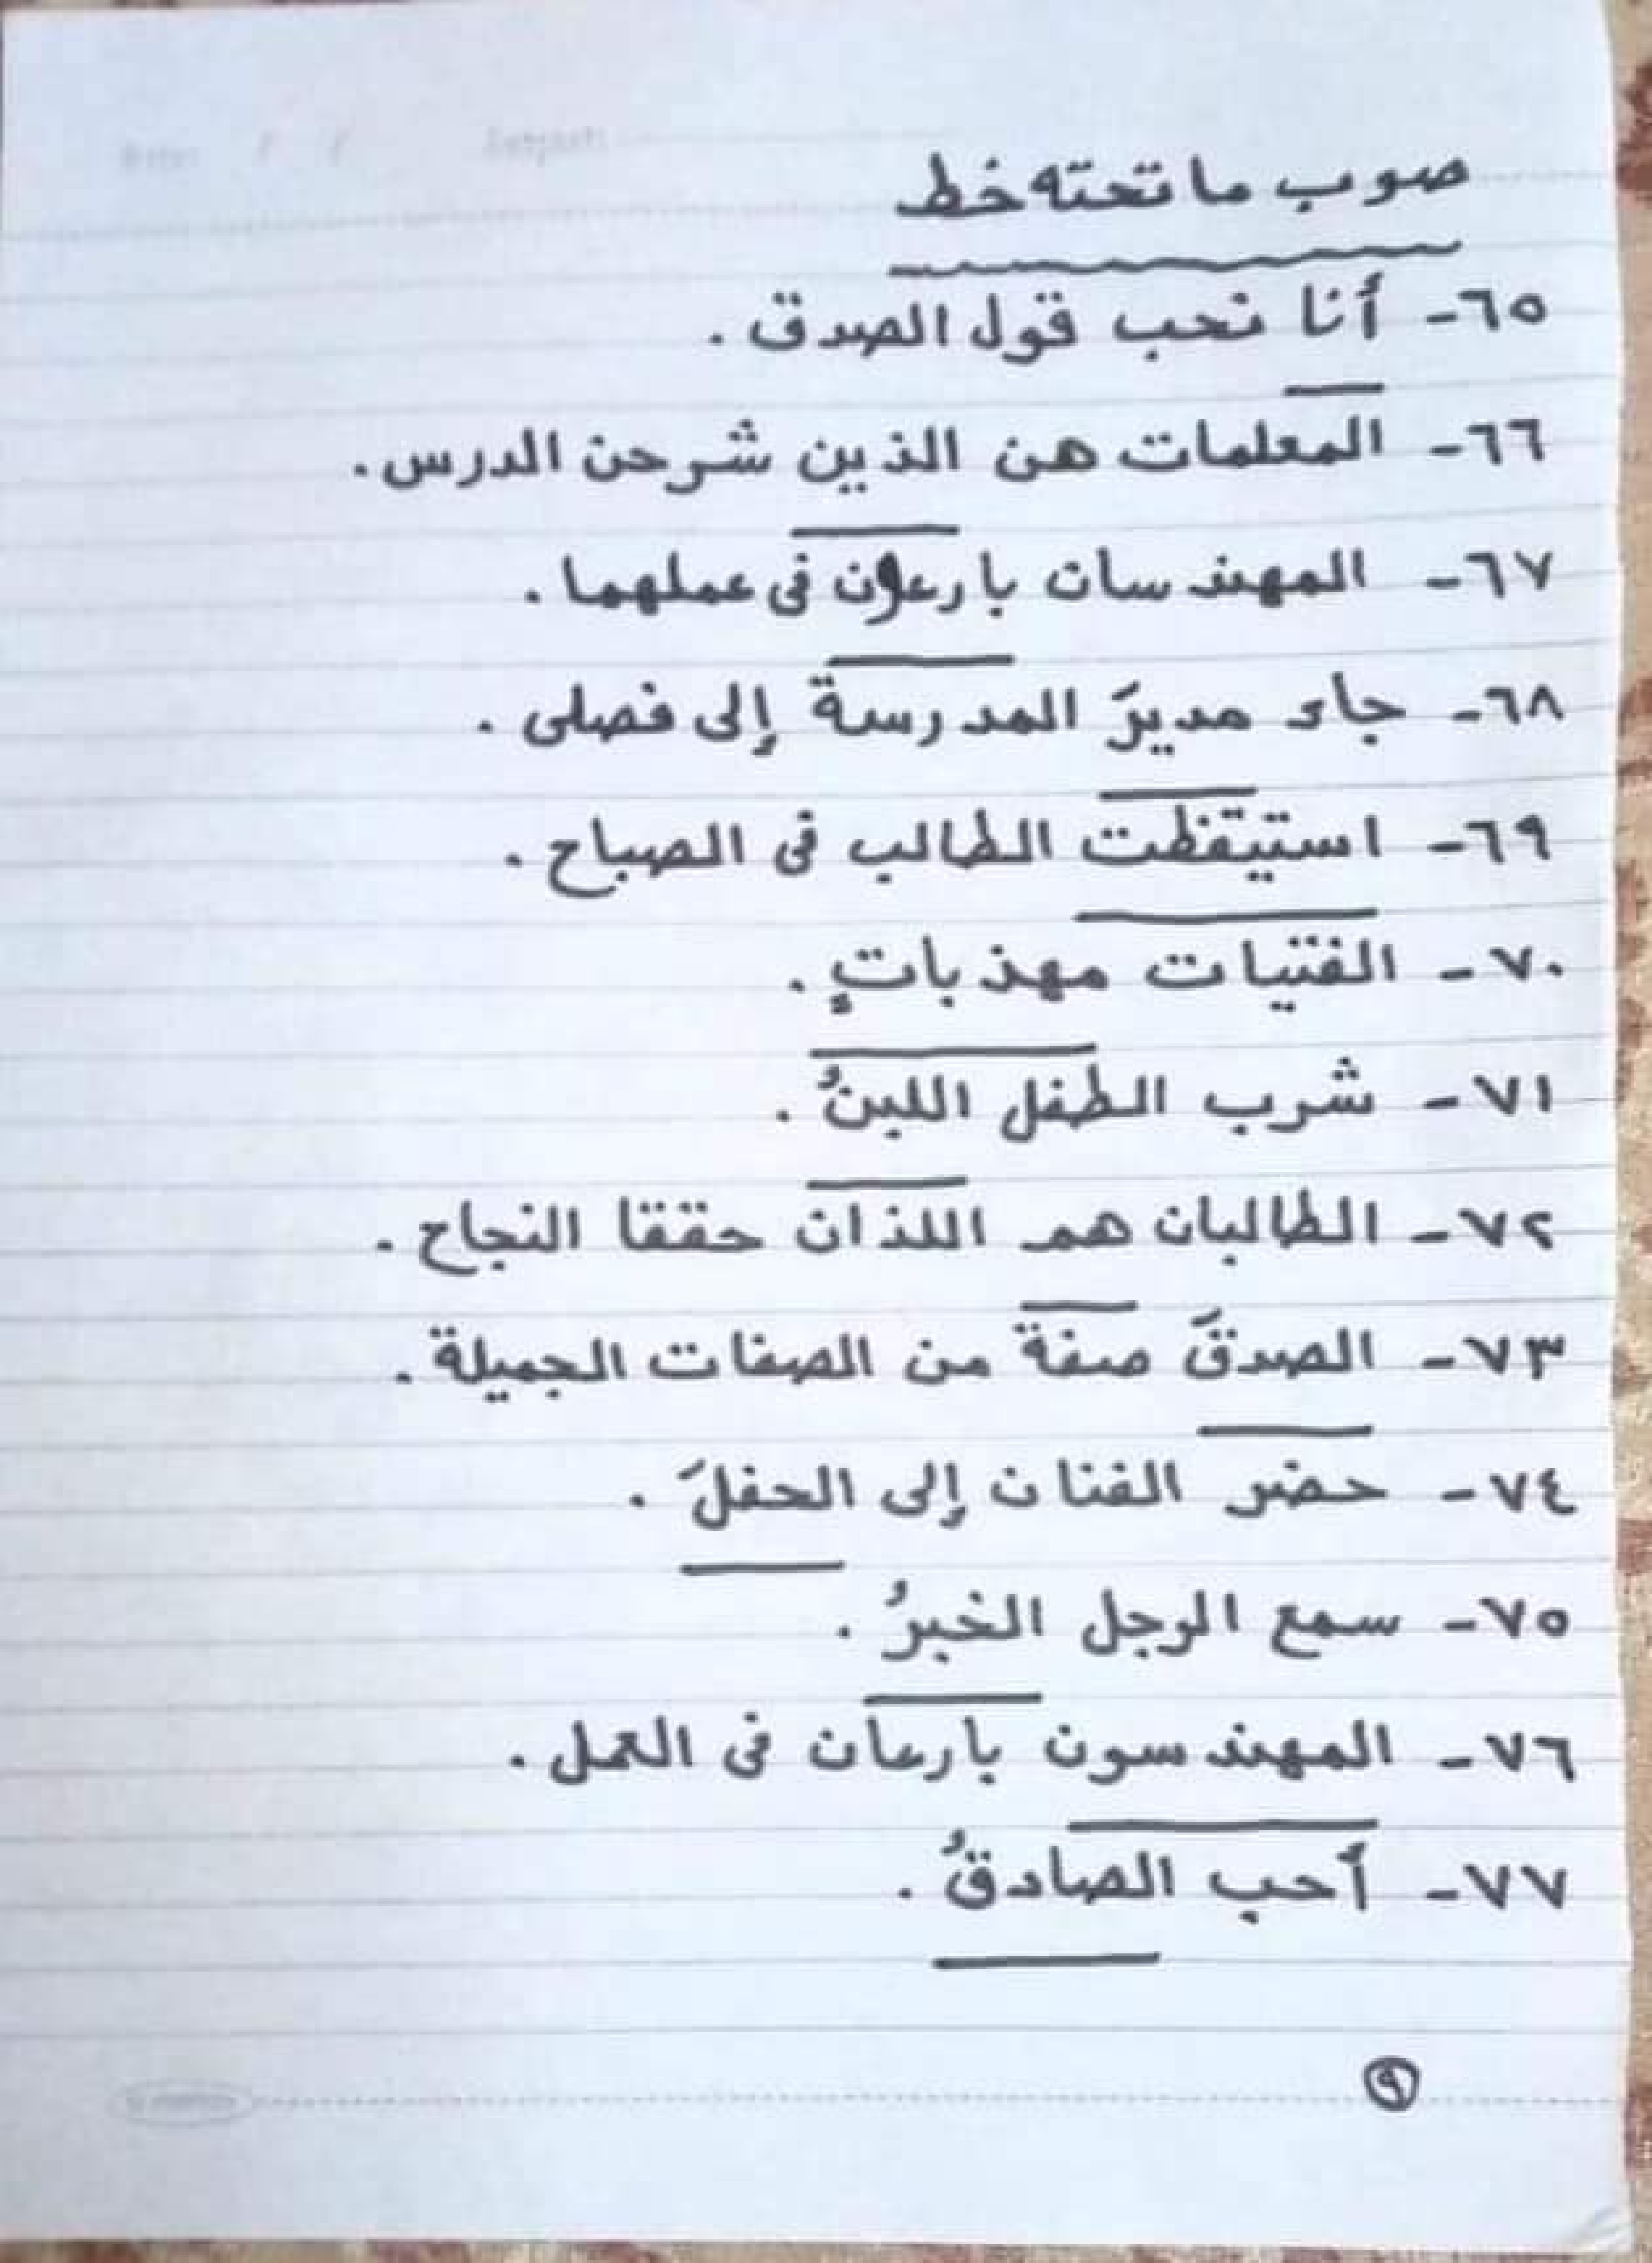 صوب ما تحته خط
٦٥- أنا نحب قول الصدق .
٦٦- المعلمات هن الذين شرحن الدرس .
٦٧- المهندسات بارعون فى عملهما .
٦٨- جاء مديرَ المدرسة إلى فصلى .
٦٩- استيقظت الطالب فى الصباح .
٧٠- الفتيات مهذباتٍ .
٧١- شرب الطفل اللبنُ .
٧٢- الطالبان هم اللذان حققا النجاح .
٧٣- الصدقَ صفة من الصفات الجميلة .
٧٤- حضر الفنان إلى الحفلَ .
٧٥- سمع الرجل الخبرُ .
٧٦- المهندسون بارعان فى العمل .
٧٧- أحب الصادقُ .
٩